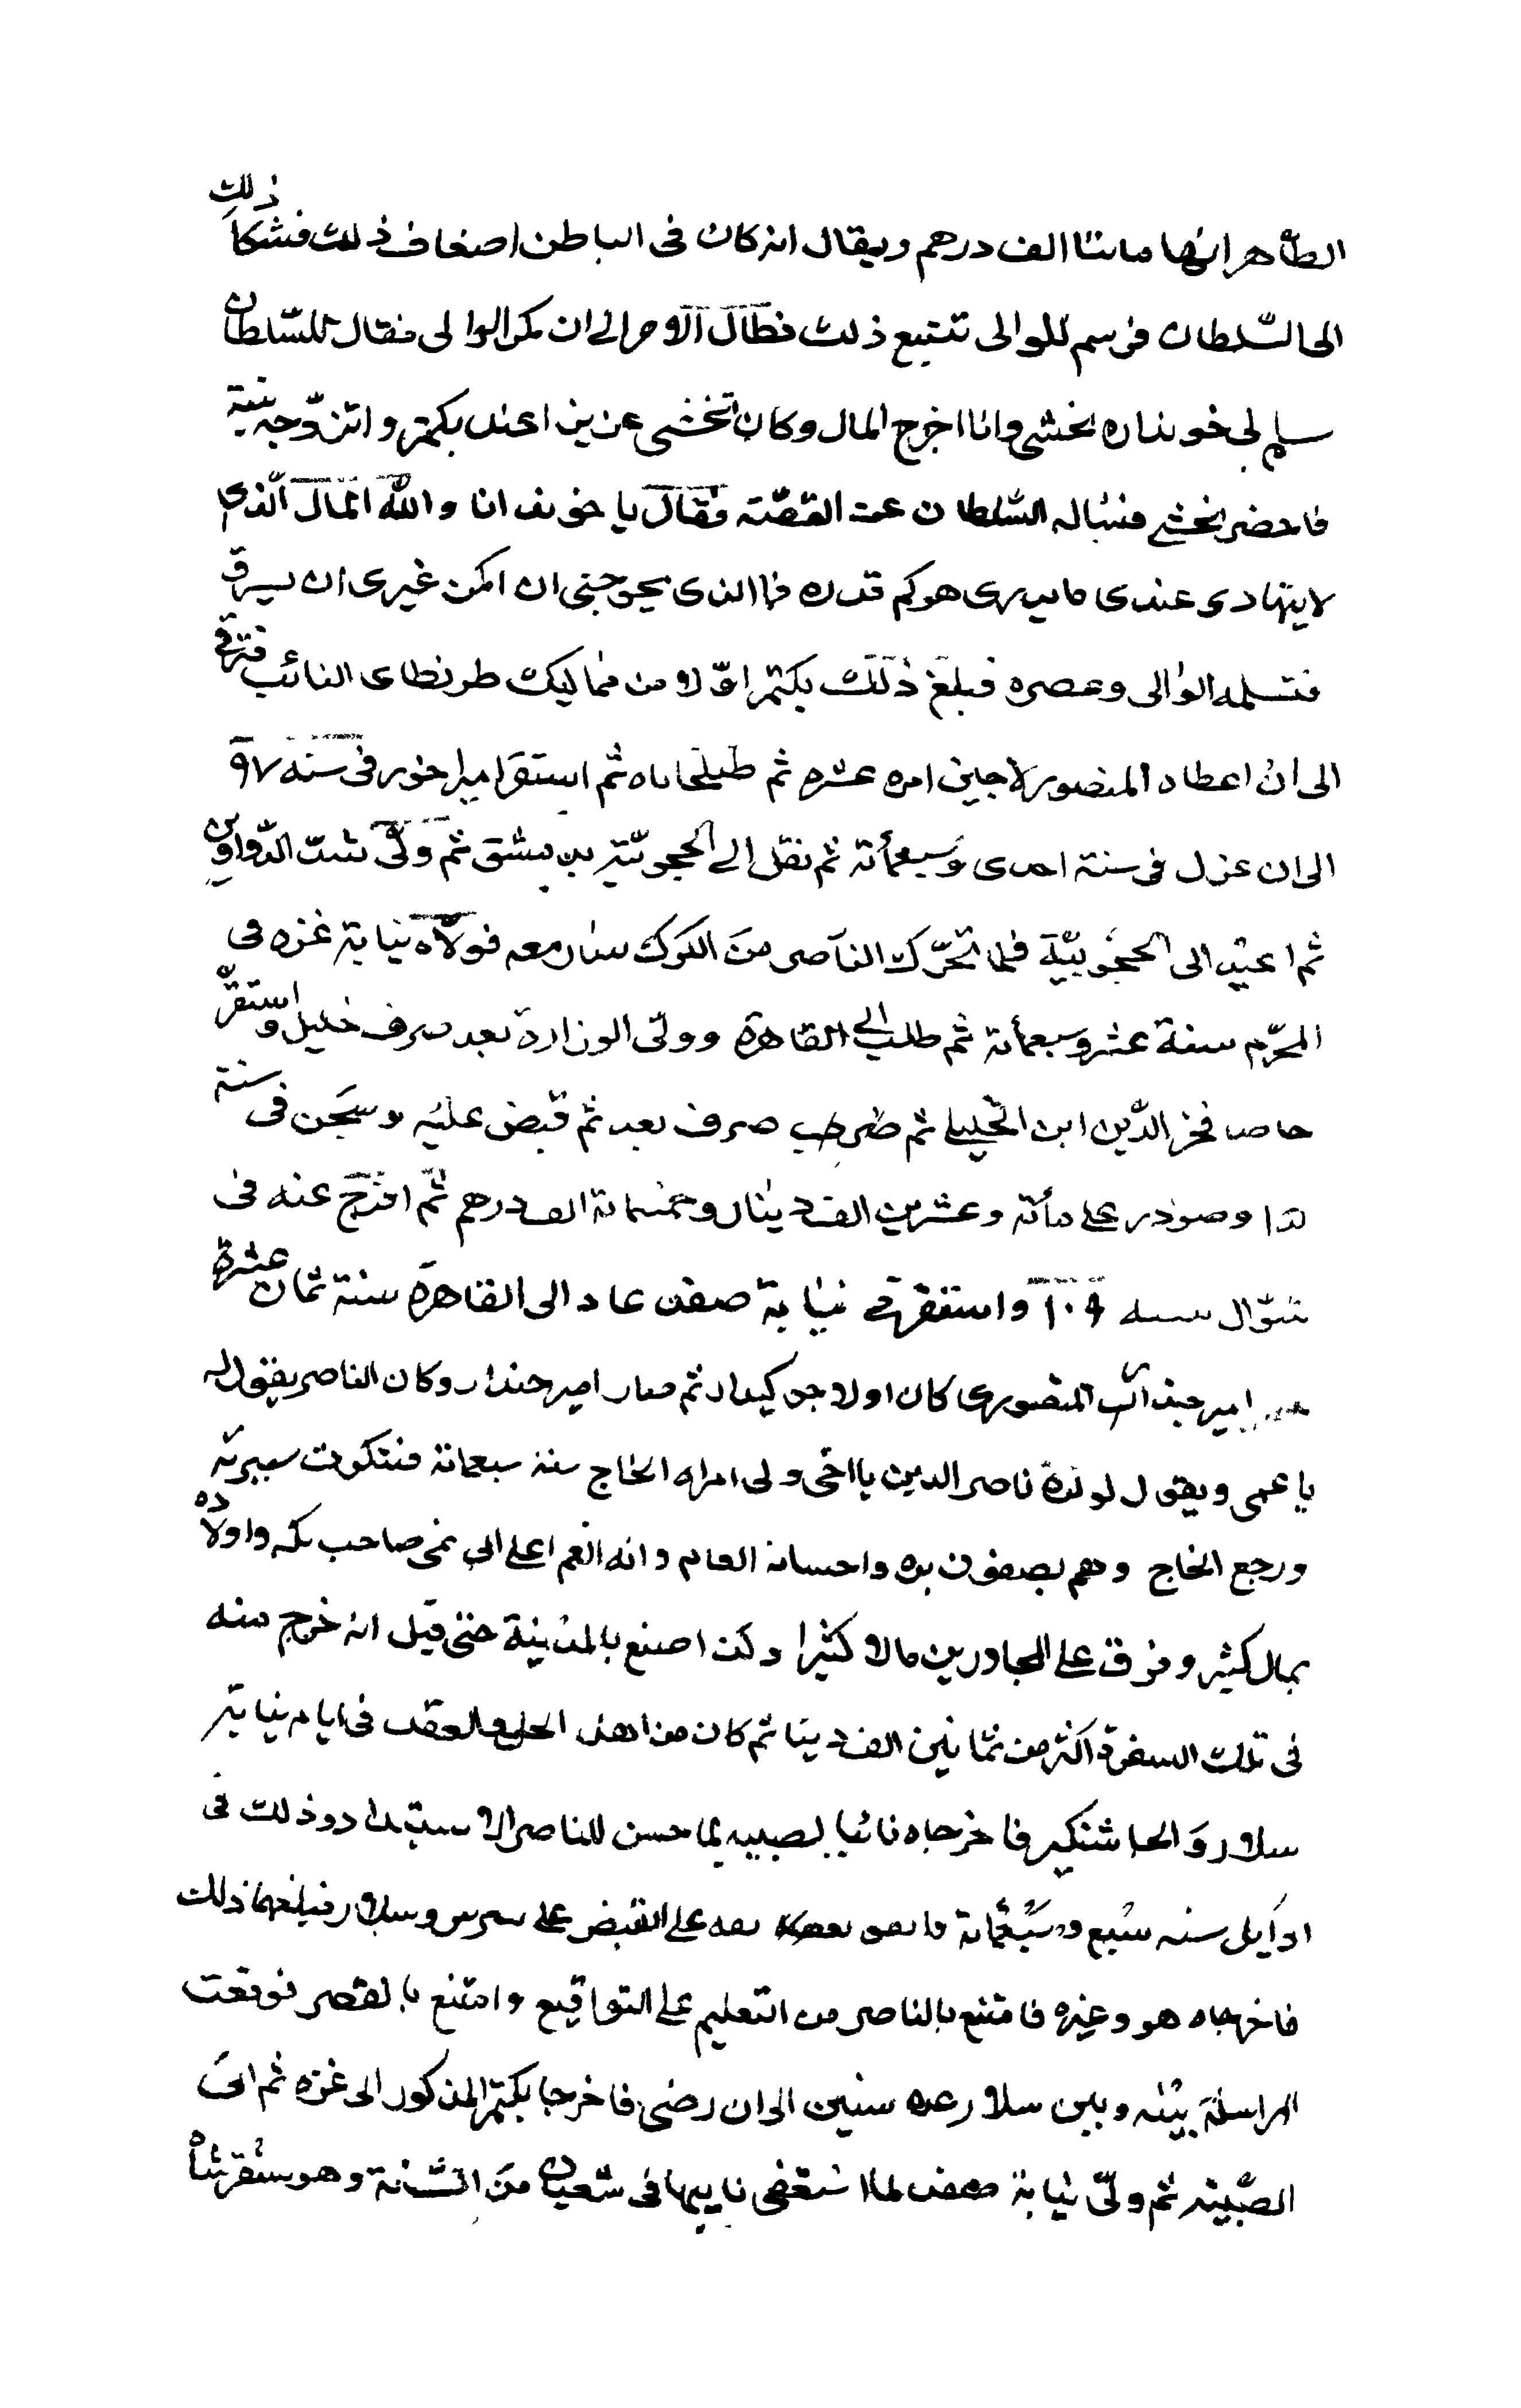 الظاهر انها مائتا الف درهم ويقال انه كان فى الباطن اضعاف ذلك فشكا ذلك
الى السّلطان فرسم للوالى تتبع ذلك فطال الامر الى ان مكر الوالى فقال للسّلطان
سلم لى خوندار بخشى وانا اخرج المال وكان بخشى عزيزا عند بكتمر واتزوّجه بنية
فاحضر بخشى فساله السّلطان عن القصّة فقال يا خوند انا والله المال الّذى
لا يتهادى عندى ما يدرى هو كم قدره فما الذى يحوجنى ان امكن غيرى ان يسرق
فتسلمه الوالى وعصره فبلغ ذلك بكتمر اوّلا من مماليك طرنطاى النائب فترقى
الى ان اعطاه المنصور لاجين امره عشره ثم طبلخاناه ثم استقر امير اخور فى سنه ٩٧
الى ان عزل فى سنة احدى وسبعمأئة ثم نقل الى الحجوبيّة بدمشق ثم ولّى شدّ الدّواوين
ثم اعيد الى الحجوبيّة فلما تحرّك الناصر من الكرك سار معه فولاّه نيابة غزه فى
المحرّم سنة عشر وسبعمأئة ثم طلب الى القاهرة وولّى الوزارة بعد صرف خليل واستقرّ
حاصا فخر الدّين ابن الخليلى ثم صرف بعد ثم قبض عليه وسجن فى سنة
وصودر على مأئة وعشرين الف دينار وخمسمائة الف درهم ثم افرج عنه فى
شوّال سنه واستقر فى نيابة صفد عاد الى القاهرة سنة ثمان عشرة
امير جندار المنصورى كان اولا جوكندار ثم صار امير جندار وكان الناصر يقول له
يا عمى ويقول لولده ناصر الدين يا اخى ولى امراه الحاج سنه سبعمائة فتشكوت سيرته
ورجع الحاج وهم يصفون بره واحسانه العام وانه انعم على ابى نمى صاحب مكه واولاده
بمال كثير وفرق على المجاورين مالا كثيرا وكذا صنع بالمدينة حتى قيل انه خرج منه
فى تلك السفرة اكثر من ثمانين الف دينا ثم كان من اهل الحل والعقد فى ايام نيابة
سلار والجاشنكير فاخرجاه نائبا بصبيبه لما حسن للناصر الاستبداد وذلك فى
اوايل سنه سبع وسبعمائة على القبض على بيبرس وسلار فبلغهما ذلك
فاخرجاه هو وغيره فامتنع بالناصر من التعليم على التواقيع وامتنع بالقصر فوقعت
المراسلة بينه وبين سلار عده سنين الى ان رضى فاخرجا بكتمر المذكور الى غزه ثم الى
الصّبيبة ثم ولّى نيابة صفد لما استعفى نايبها فى شعبان من السّنة وهو سنقرشاه